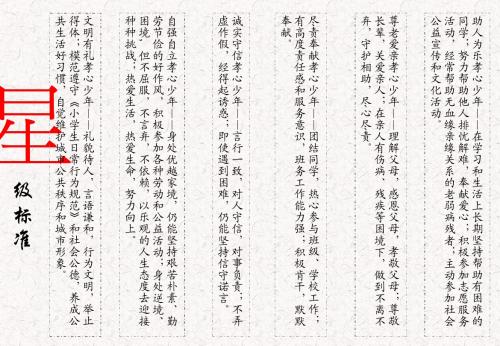 助人为乐孝心少年——在学习和生活上长期坚持帮助有困难的
同学；努力帮助他人排忧解难，奉献爱心；积极参加志愿服务
活动，经常帮助无血缘亲缘关系的老弱病残者；主动参加社会
公益宣传和文化活动。
尊老爱亲孝心少年——理解父母，感恩父母，孝敬父母；尊敬
长辈，关爱亲人；在亲人有伤病、残疾等困境下，做到不离不
弃，守护相助，尽心尽责。
尽责奉献孝心少年——团结同学，热心参与班级、学校工作；
有高度责任感和服务意识，班务工作能力强；积极肯干，默默
奉献。
诚实守信孝心少年——言行一致，对人守信，对事负责；不弄
虚作假，经得起诱惑；即使遇到困难，仍能坚持信守诺言。
自强自立孝心少年——身处优越家境，仍能坚持艰苦朴素、勤
劳节俭的好作风，积极参加各种劳动和公益活动；身处逆境、
困境，但不屈服，不言弃，不依赖，以乐观的人生态度去迎接
种种挑战；热爱生活，热爱生命，努力向上。
文明有礼孝心少年——礼貌待人，言语谦和，行为文明，举止
得体；模范遵守《小学生日常行为规范》和社会公德，养成公
共生活好习惯，自觉维护城市公共秩序和城市形象。
星
级标准